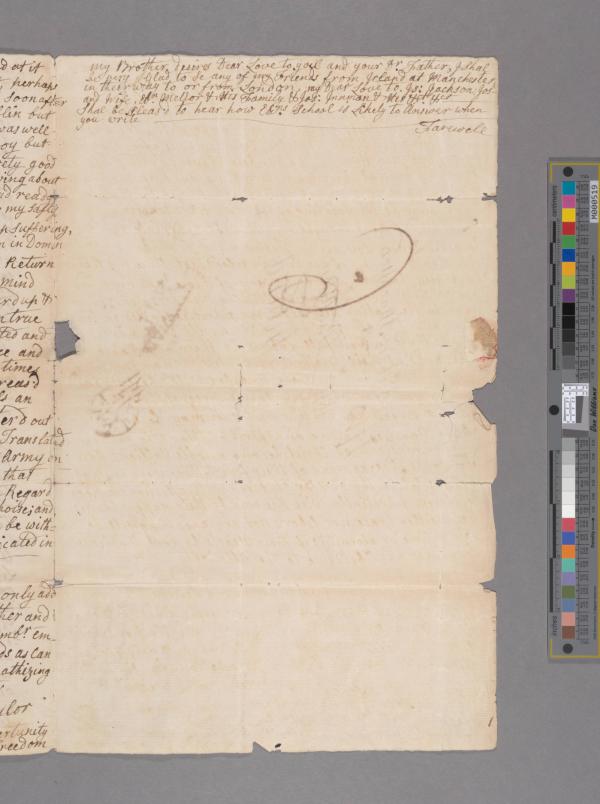 d at it
perhaps
Soon after
lin but
was well
oy but
ety good
ing about
d ready
my safe
n Suffering,
n in Domin
Return
mind
ard up &
a true
ted and
ce and
times
reas'd
ls an
er'd out
Translated
Army on
that
Regard
hoise; and
be with=
icated in
only add
ther and
mbr em
ds as Can
athizing
ylor
ertunity
freedom
my Brother desires Dear Love to you and your Dr Father, I shal
be very Glad to se any of my friends from Ireland at Manchester
in their way to or from London, my Dear Love to Js: Jackson Jos
and wife, Wm Mellor & His Family & Jos: Inman &
Shal be pleas'd to hear how School is Likely to Answer when
you write
Farewell
1
centimeters
inches
M000519
Don Williams